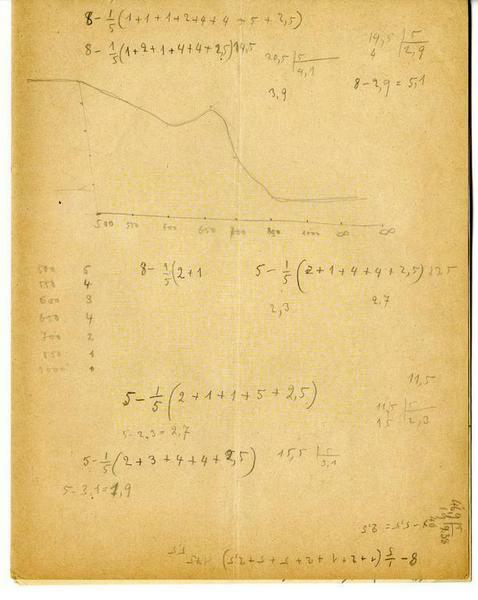 8 - 1/5 (1+1+1+2+4+4+5+2,5)
8 - 1/5 (1+2+1+4+4+2,5) 14,5
20,5 | 5
4,1
14,5 | 5
4 2,9
3,9
8 - 2,9 = 5,1
500 550 600 650 700 850 1000 ∞ ∞
8 - 1/5 (2+1
5 - 1/5 (2+1+4+4+2,5) 125
2,3 2,7
500 5
550 4
600 3
650 4
700 2
850 1
1000
5 - 1/5 (2+1+1+5+2,5)
11,5
11,5 | 5
15 2,3
5 - 2,3 = 2,7
5 - 1/5 (2+3+4+4+2,5)
15,5 | 5
3,1
5 - 3,1 = 1,9
- 5,5 = 2,5
8 - 1/5 (1+2+1+2+5+5+2,5)